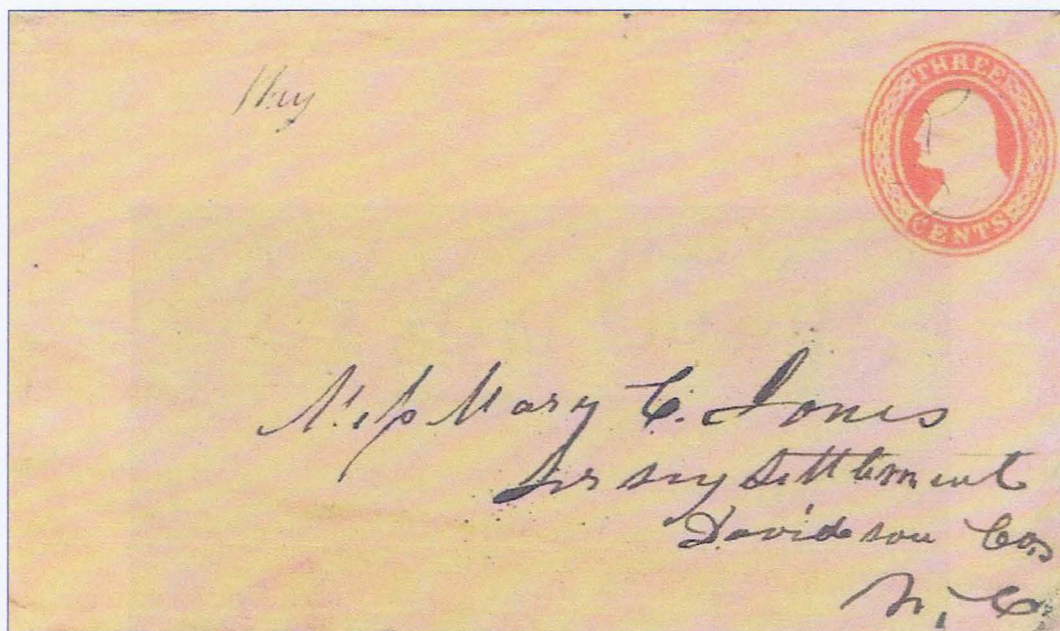 THREE
CENTS
Miss Mary C. Jones
Jersey Settlement
Davidson Co.
N. C.